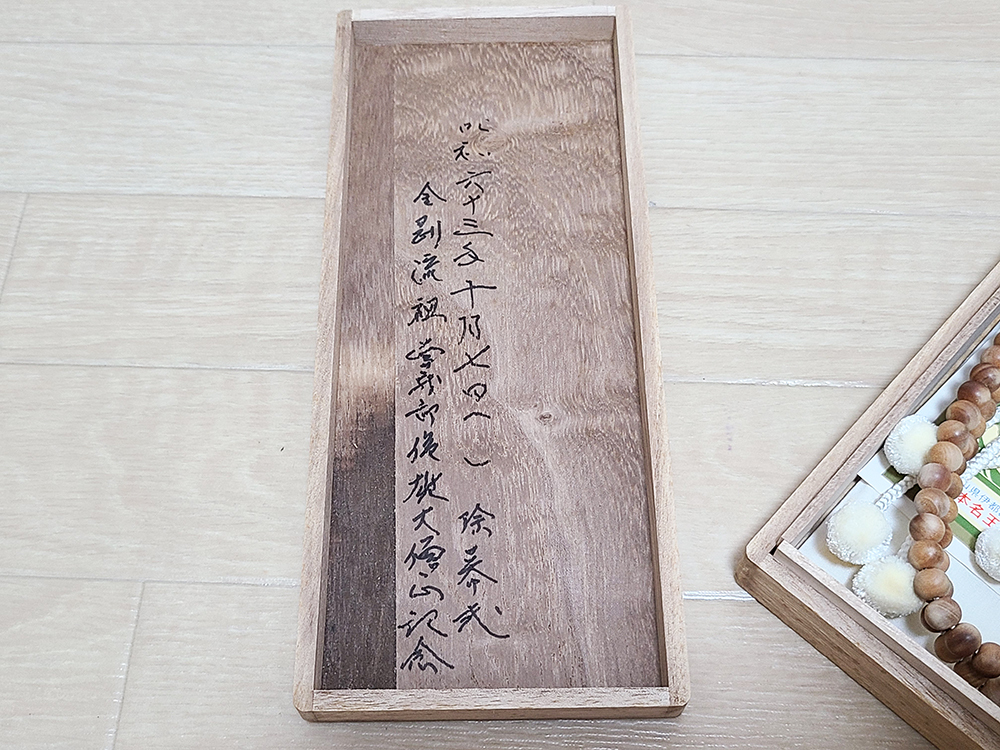 昭和六十三年十月七日( ) 除幕式
金剛流祖 曽我部俊雄大僧正記念
山県伊都
本名